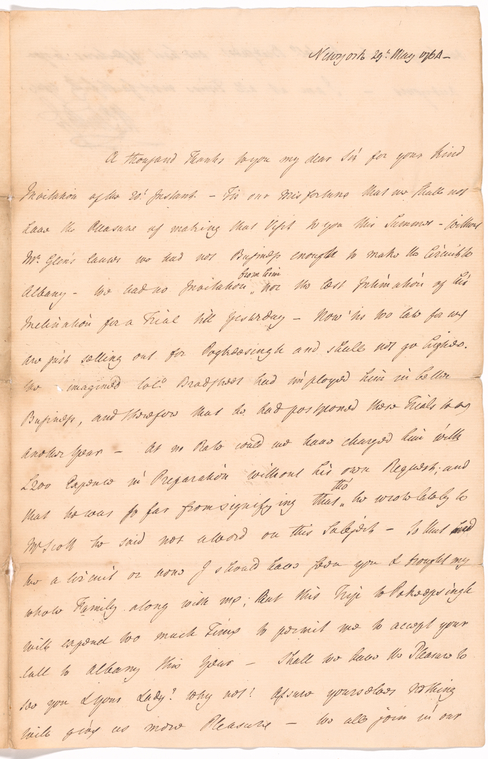 New york 29th May 1764 —
A thousand Thanks to you my dear Sir for your kind
Invitation of the 20th Instant — Tis our misfortune that we shall not
have the Pleasure of making that Visit to you this Summer — Without
Mr. Glen's causes we had not Business enough to make the Circuit to
from him
Albany — We had no Invitation, nor the least Intimation of his
Inclination for a Trial till Yesterday — Now tis too late for we
are just setting out for Poghkeepsingh and shall not go higher.
We imagined Colo. Bradstreet had imployed him in better
Business, and therefore that he had postponed these Trials to
another Year — At no Rate could we have charged him with
£200 Expence in Preparation without his own Request, and
tho'
that he was so far from signifying that, he wrote lately to
Mr Scott he said not a word on this Subject — So that had
we a Circuit or none I should have seen you & brought my
whole Family along with me; But this Trip to Pokeepsingh
will expend too much Time to permit me to accept your
call to Albany this Year — Shall we have the Pleasure to
see you & your Lady? why not? Assure yourselves Nothing
will give us more Pleasure — We all join in our